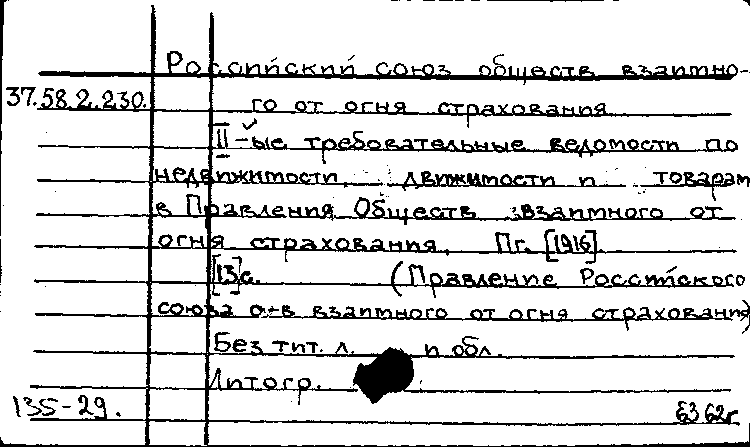 Российский союз обществ взаимно-
37.58.2.230. го от огня страхования
II-ые требовательные ведомости по
недвижимости, движимости и товарам
в Правления Обществ взаимного от
огня страхования. Пг. [1916].
[13]с. (Правление Российского
союза о-в взаимного от огня страхования)
Без тит. л. и обл.
Литогр.
135-29. 62г